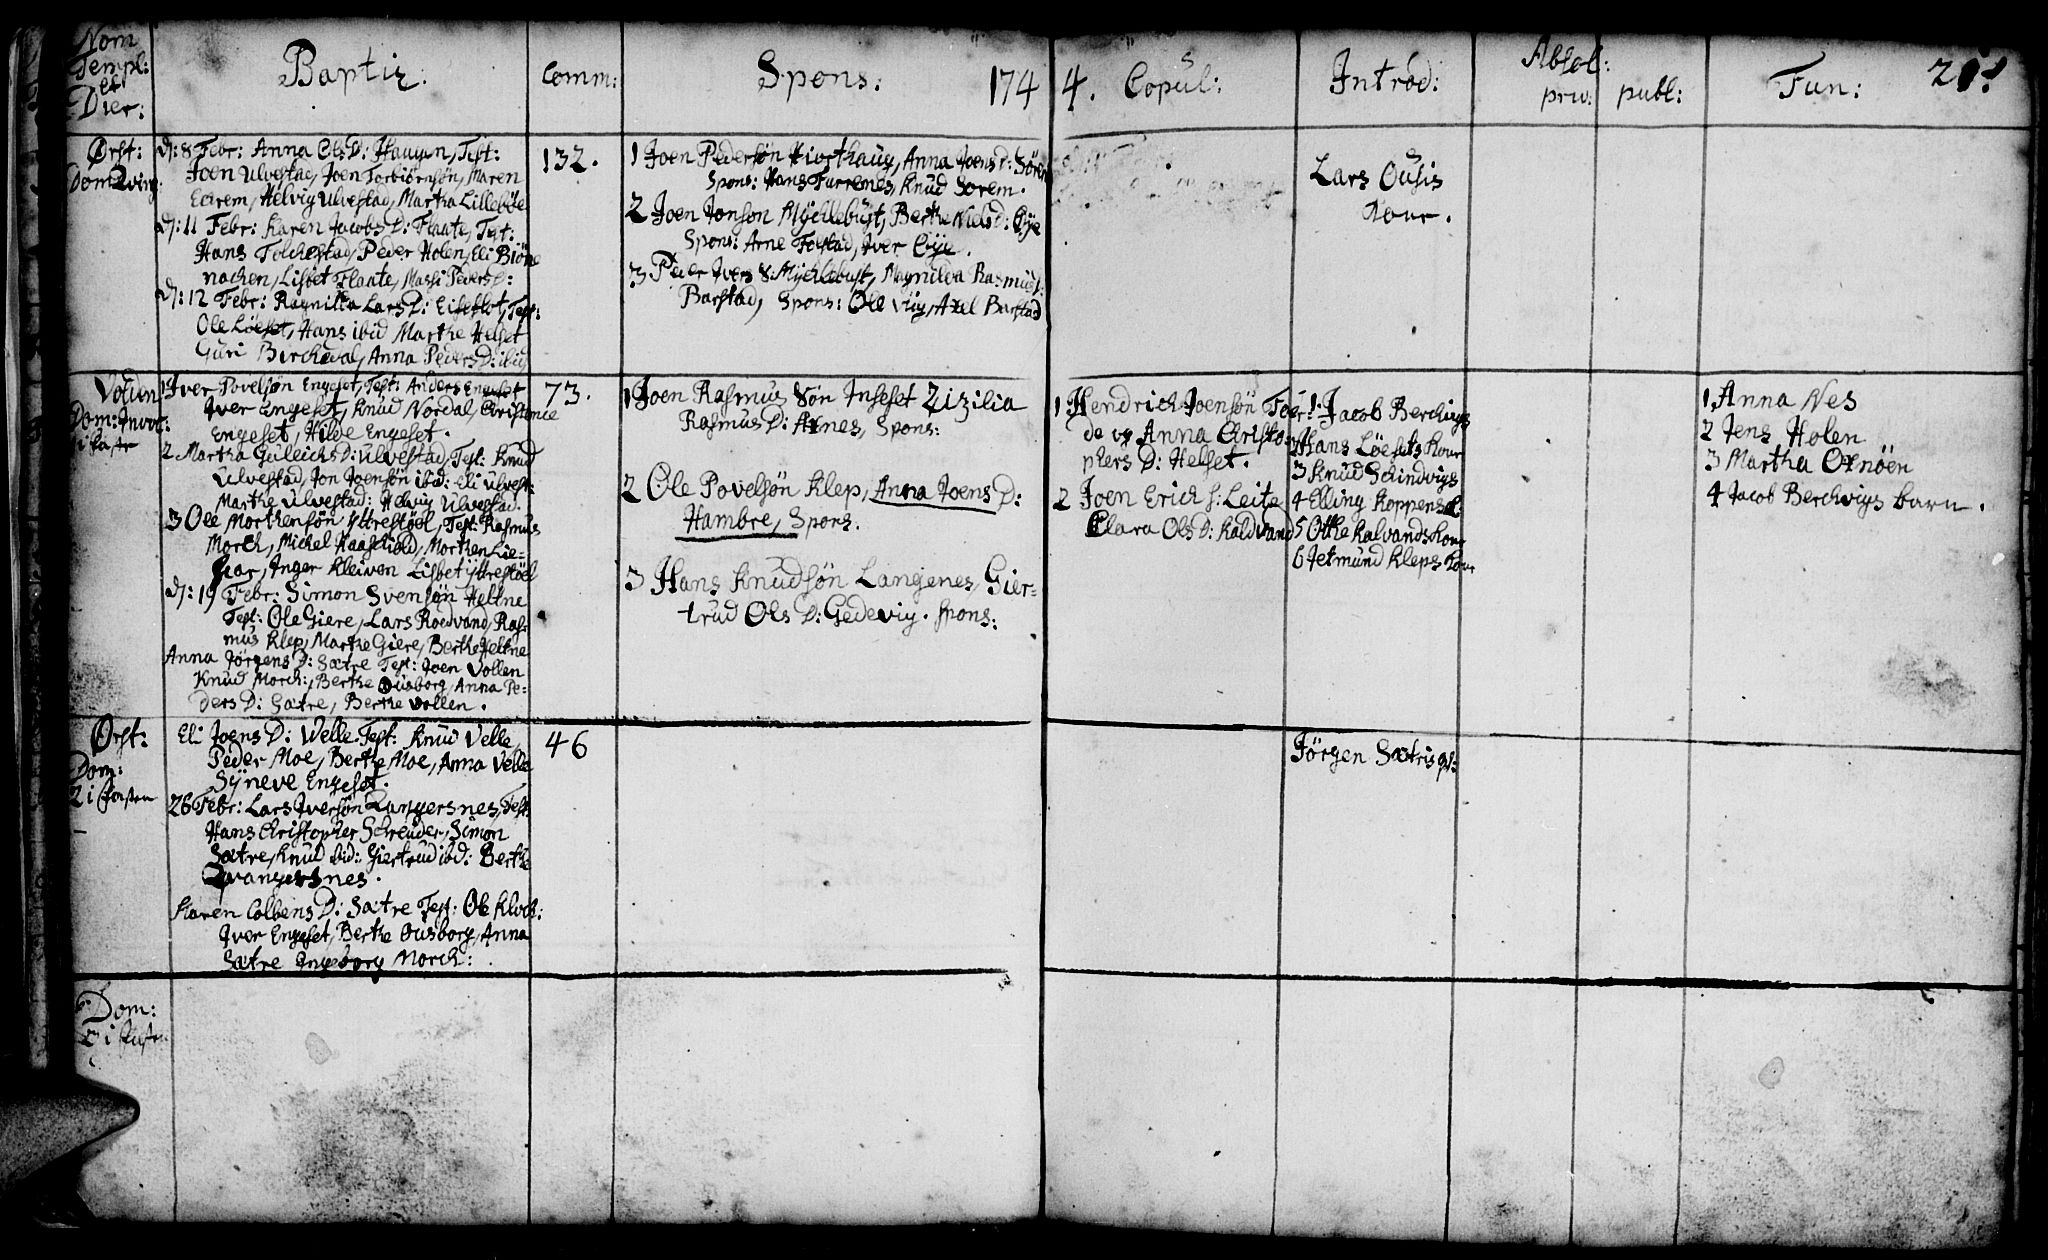 Nom
Templ:
et
Dier:
Baptiz:
Comm:
Spons:
174
4.
Copul:
Introd:
Absol:
priv:
publ:
Fun:
Ørst:
Dom
D: 8 Febr: Anna Ols D: Haugen, Test:
Joen Ulvestad, Joen Torbiörnsön, Maren
Eerem, Helvig Ulvestad, Martha Lillebøe
D: 11 Febr: Karen Jacobs D: Flaate, Test:
Hans Folchestad, Peder Holen, Eli Biørne
nachen, Lisbet Flaate, Massi Peders D:
D: 12 Febr: Ragnilla Lars D: Eiseslot, Test:
Ole Løeset, Hans ibid Marthe Helset
Guri Bircheval, Anna Peders D: ibid
132.
1 Joen Pedersön Hiorthaug, Anna Joens D: Sörem
Spons: Hans Furrenes, Knud Sorem.
2 Joen Jonson Mÿchlebust, Berthe Niels D: Øÿe
Spons: Arne Folstad, Iver Øÿe.
3 Peder Ivers S: Mÿchlebust, Magnilda Rasmus D:
Barstad, Spons: Ole Viig, Axel Barstad
Lars Ousis
Kone.
Volden
Dom: Invoc:
i Faste
1 Iver Povelsön Engeset, Test: Anders Engeset
Iver Engeset, Knud Nordal, Christence
Engeset, Hilde Engeset.
2 Martha Guleichs D: Ulvestad, Test: Knud
Ulvestad, Jon Joensön ibid: Eli Ulvest:
Marthe Ulvestad: Helvig Ulvestad.
3 Ole Morthensön Yttrestöel, Test: Rasmus
Morch, Michel Haaschiold, Morthen Lie-
Inger Kleiven Lisbet Ÿttrestöel
D: 19 Febr: Simon Svensön Heltne
Test: Ole Giere, Lars Roedvand, Ras-
mus Klep, Marthe Giere, Berthe Heltne
Anna Jörgens D: Sætre Test: Joen Vollen
Knud Morch:, Berthe Ousborg, Anna Pe-
ders D: Sætre, Berthe Vollen.
73.
1 Joen Rasmus Sön Inseset Zizilia
Rasmus D: Aarnes, Spons:
2 Ole Povelsön Klep, Anna Joens D:
Hambre, Spons.
3 Hans Knudsön Langenes, Gier-
trud Ols D: Gedevig. Spons:
1 Hendrich Joensön Foer-
de og Anna Christo-
phers D: Helset.
2 Joen Erich S: Leite
Clara Ols D: Kaldvand
1 Jacob Berchvigs
2 Hans Løesets Kone
3 Knud Schindvigs
4 Elling Koppens
5 Otthe Kalvands Kone
6 Jetmund Kleps Kone
1 Anna Nes
2 Jens Holen
3 Martha Otnöen
4 Jacob Berchvigs barn.
Ørst:
Dom:
2 i Fasten
Eli Joens D: Welle Test: Knud Velle,
Peder Moe, Berthe Moe, Anna Velle
Sÿneve Engeset.
26 Febr: Lars Iversön Qvangersnes, Test
Hans Christopher Schreuder, Simon
Sætre, Knud ibid: Giertrud ibd: Berthe
Qvangersnes.
Karen Colbens D: Sætre Test: Ole Klob:
Iver Engeset, Berthe Ousborg, Anna
Sætre Engeborg Morch:
46
Jörgen Sætris
Dom:
3 i Fasten